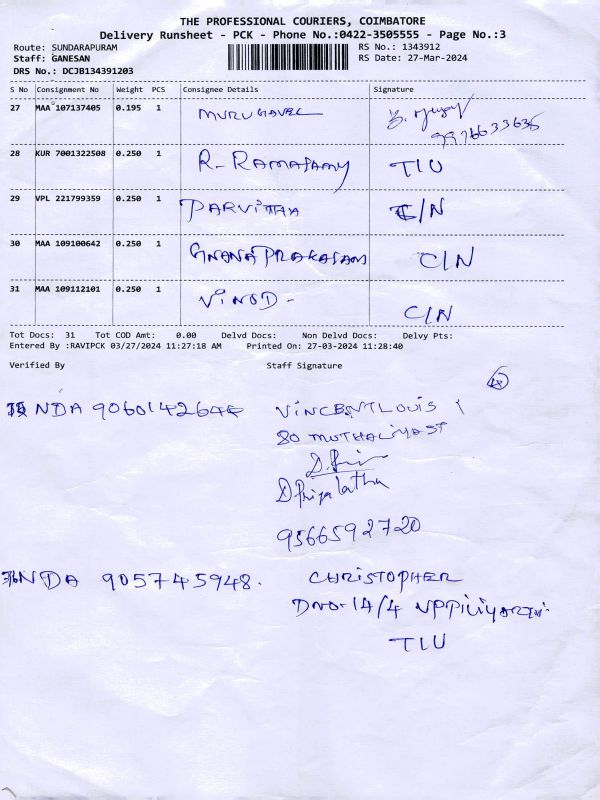 THE PROFESSIONAL COURIERS, COIMBATORE
Delivery Runsheet - PCK - Phone No.:0422-3505555 - Page No.:3
Route: SUNDARAPURAM RS No.: 1343912
Staff: GANESAN RS Date: 27-Mar-2024
DRS No.: DCJB134391203
S No Consignment No Weight PCS Consignee Details Signature
27 MAA 107137405 0.195 1 MURUGAVEL
9976633635
28 KUR 7001322508 0.250 1 R-RAMASAMY TIU
29 VPL 221799359 0.250 1 PARVITHA C/N
30 MAA 109100642 0.250 1 GNANAPRAKASAM C/N
31 MAA 109112101 0.250 1 VINOD - C/N
Tot Docs: 31 Tot COD Amt: 0.00 Delvd Docs: Non Delvd Docs: Delvy Pts:
Entered By :RAVIPCK 03/27/2024 11:27:18 AM Printed On: 27-03-2024 11:28:40
Verified By Staff Signature
NDA VINCENTLOUIS
80 MUTHALIYAR ST
D Priyalatha
9566592720
NDA 905745948. CHRISTOPHER
DNO-14/4
TIU